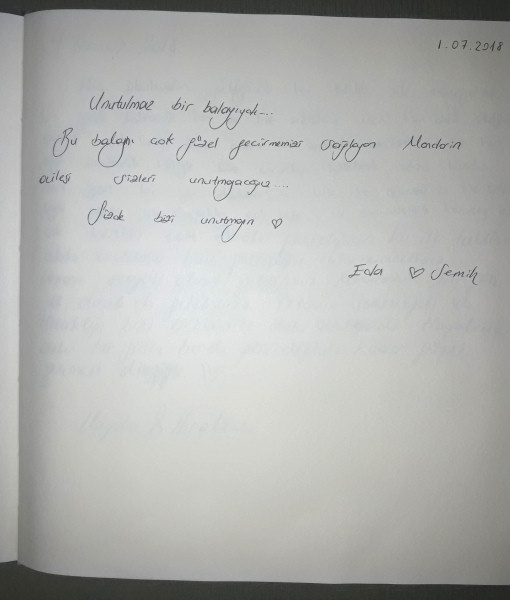 1.07.2018
Unutulmaz bir balayıydı....
Bu balayını çok güzel geçirmemizi sağlayan Mandarin
ailesi sizleri unutmayacağız....
Sizde bizi unutmayın ♡
Eda ♡ Semih